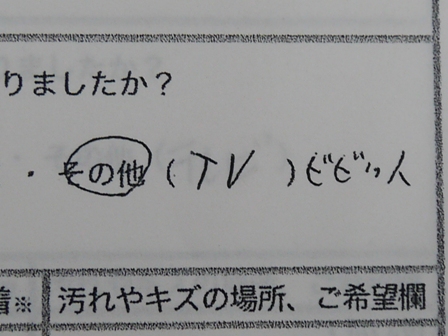 りましたか？
・その他（TV）ビビッ人
着※ 汚れやキズの場所、ご希望欄